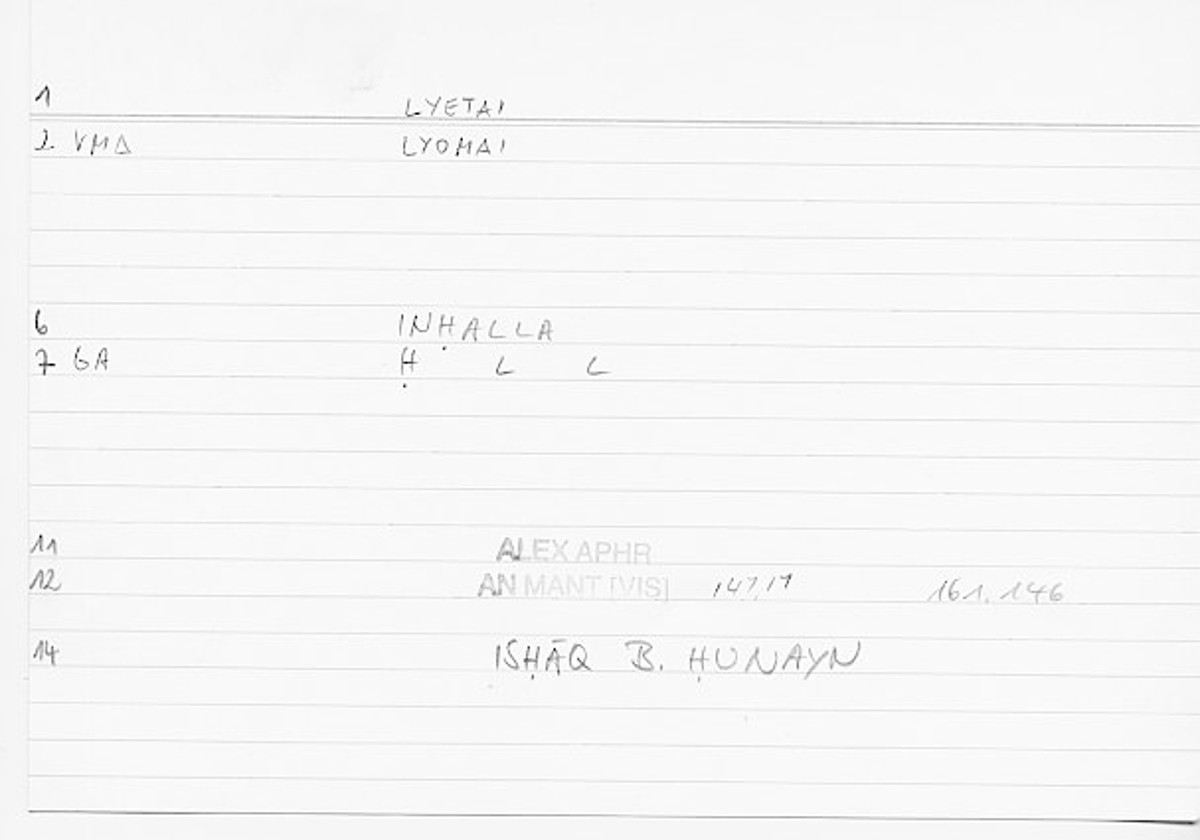 1 LYETAI
2 VMΔ LYOMAI
6 INḤALLA
7 GA Ḥ L L
11 ALEX APHR
12 AN MANT [VIS] 147,17 161,146
14 ISḤĀQ B. ḤUNAYN